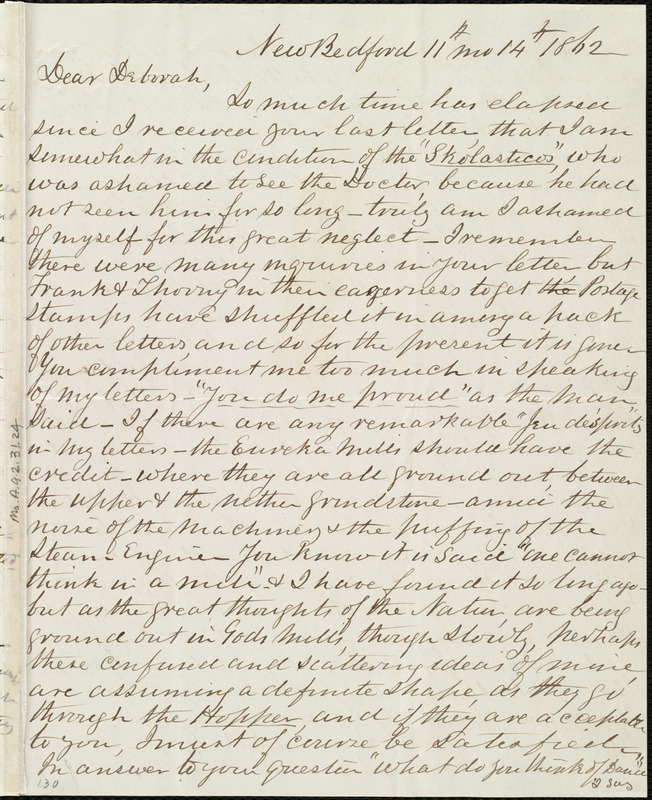 New Bedford 11th mo 14th 1862
Dear Deborah,
So much time has elapsed
since I received your last letter, that I am
somewhat in the condition of the "Skolasticos", who
was ashamed to see the Doctor, because he had
not seen him for so long - truly am I ashamed
of myself for this great neglect - I remember
there were many inquiries in your letter but
Frank & Thorny in their eagerness to get the Postage
Stamps have shuffled it in among a pack
of other letters, and so for the present it is gone
You compliment me too much in speaking
of my letters - "You do me proud" as the man
said - If there are any remarkable "Jeu désprits"
in my letters - the Eureka Mills should have the
credit - where they are all ground out, between
the upper & the nether grindstone - amid the
noise of the machinery & the puffing of the
Steam-Engine - You know it is said "one cannot
think in a mill" & I have found it so long ago -
but as the great thoughts of the Nation are being
ground out in Gods Mills, though slowly, perhaps
these confused and scattering ideas of mine,
are assuming a definite shape as they go
through the Hopper, and if they are acceptable
to you, I must of course be satisfied
In answer to your question "what do you think of Daniel"
I say
Ms. A. 9. 2. 31. 24
130